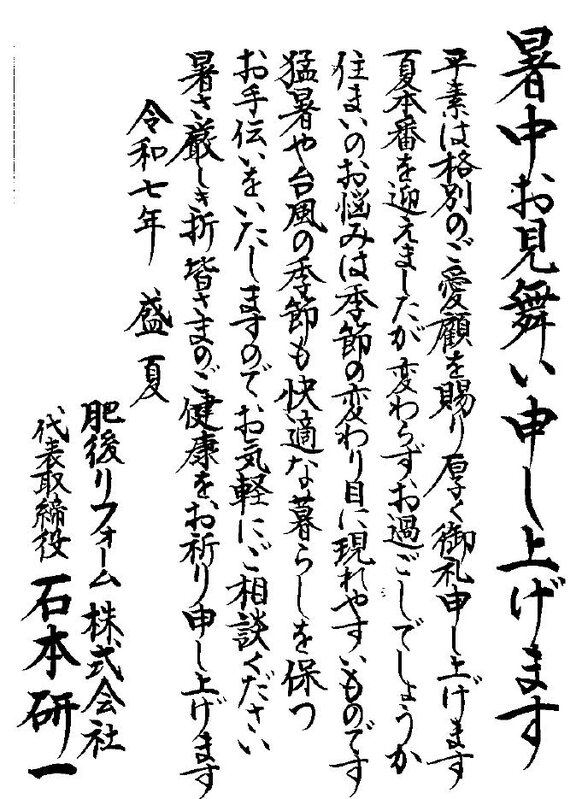 暑中お見舞い申し上げます
平素は格別のご愛顧を賜り厚く御礼申し上げます
夏本番を迎えましたが変わらずお過ごしでしょうか
住まいのお悩みは季節の変わり目に現れやすいものです
猛暑や台風の季節も快適な暮らしを保つ
お手伝いをいたしますのでお気軽にご相談ください
暑さ厳しき折皆さまのご健康をお祈り申し上げます
令和七年 盛夏
肥後リフォーム株式会社
代表取締役 石本研一